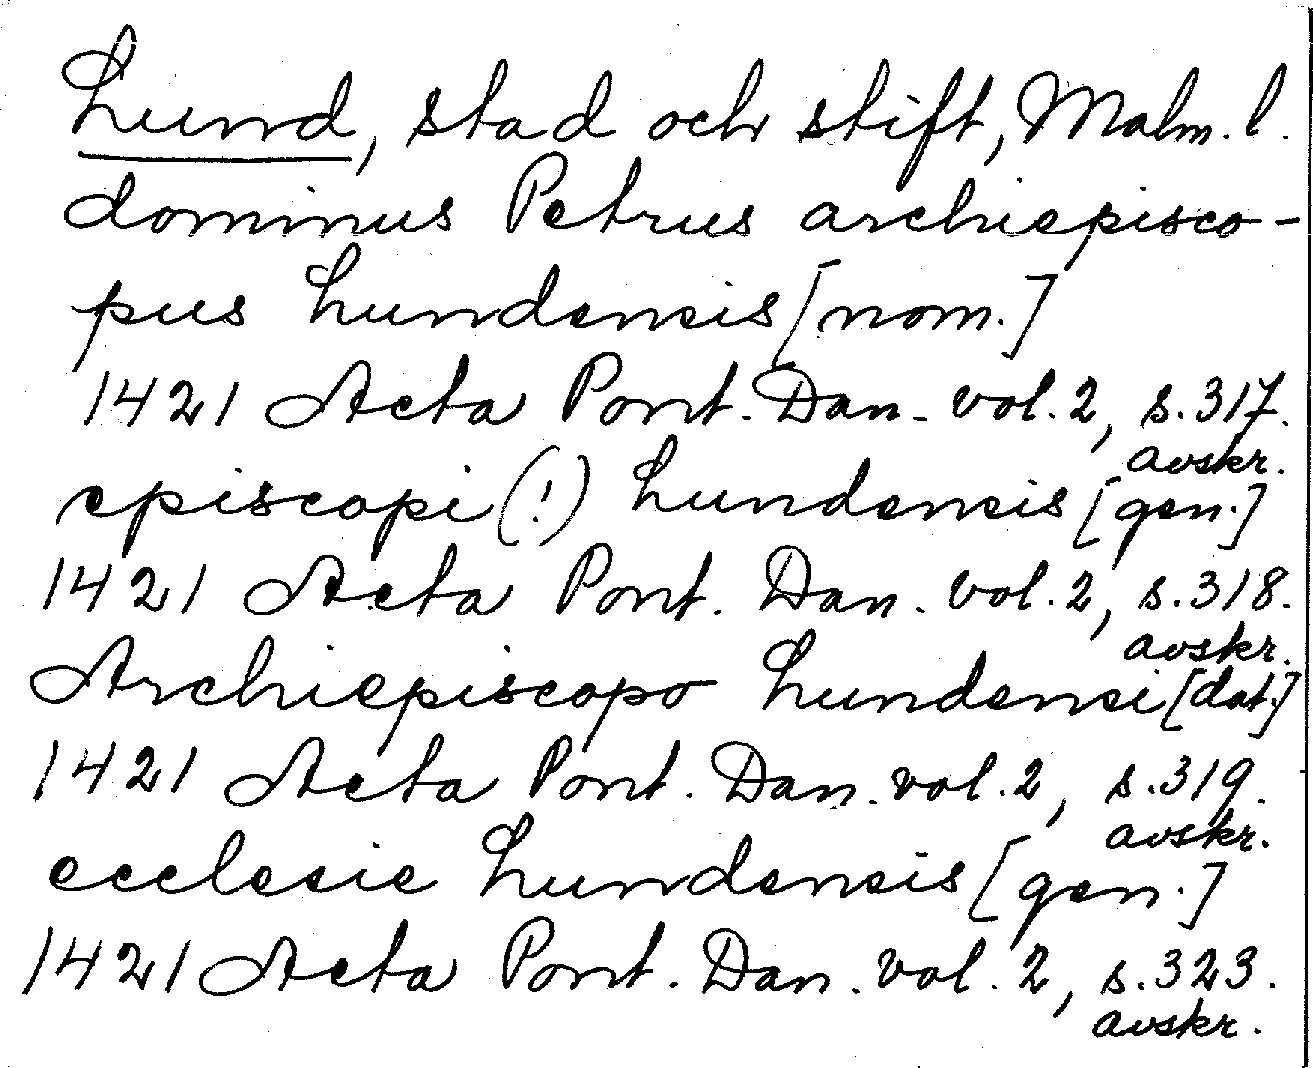 Lund, stad och stift, Malm. l.
dominus Petrus archiepisco-
pus Lundensis [nom.]
1421 Acta Pont. Dan. vol. 2, s. 317.
avskr.
episcopi (!) Lundensis [gen.]
1421 Acta Pont. Dan. vol. 2, s. 318.
avskr.
Archiepiscopo Lundensi [dat.]
1421 Acta Pont. Dan. vol. 2, s. 319.
avskr.
ecclesie Lundensis [gen.]
1421 Acta Pont. Dan. vol. 2, s. 323.
avskr.